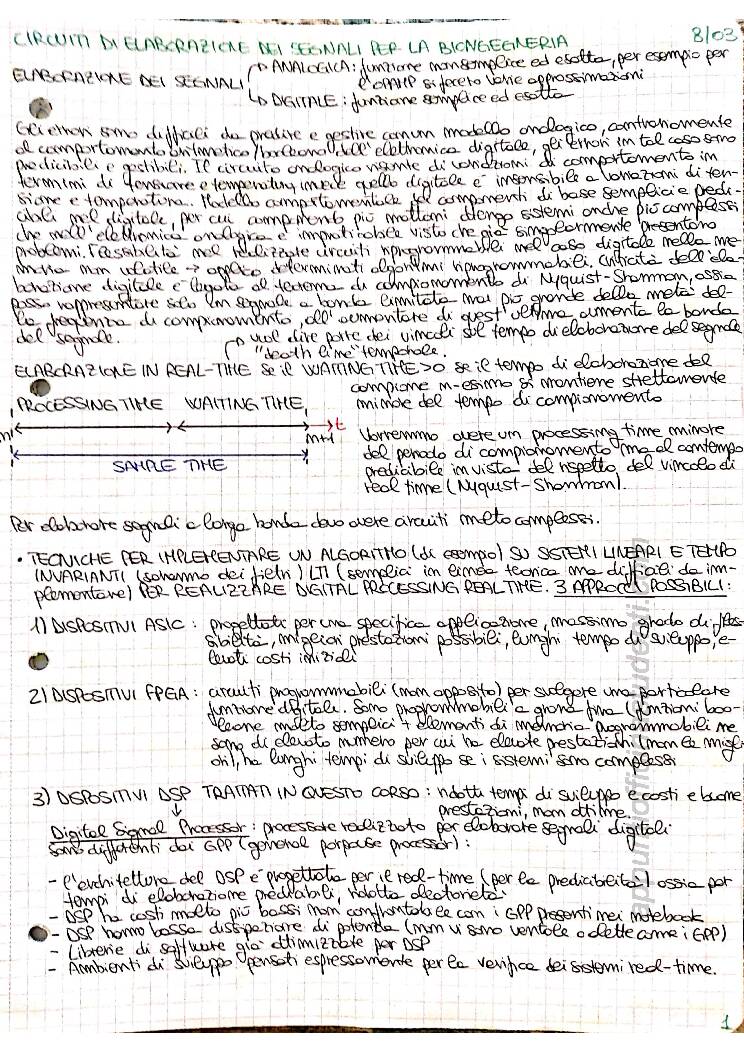 CIRCUITI DI ELABORAZIONE DEI SEGNALI PER LA BIOINGEGNERIA 8/03
ELABORAZIONE DEI SEGNALI → ANALOGICA: funzione non semplice ed esatta, per esempio per
l'OPAMP si fecero varie approssimazioni
→ DIGITALE: funzione semplice ed esatta
Gli errori sono difficili da predire e gestire con un modello analogico, contrariamente
al comportamento aritmetico/booleano dell'elettronica digitale, gli errori in tal caso sono
predicibili e gestibili. Il circuito analogico risente di variazioni di comportamento in
termini di tensione e temperatura, invece quello digitale è insensibile a variazioni di ten-
sione e temperatura. Modello comportamentale dei componenti di base semplici e predi-
cibili nel digitale, per cui componendo più mattoni ottengo sistemi anche più complessi
che nell'elettronica analogica è impraticabile visto che già singolarmente presentano
problemi. Flessibilità nel realizzare circuiti riprogrammabili nel caso digitale nella me-
moria non volatile → applico determinati algoritmi riprogrammabili. Criticità dell'ela-
borazione digitale è legata al teorema di campionamento di Nyquist-Shannon, ossia
posso rappresentare solo un segnale a banda limitata mai più grande della metà del-
la frequenza di campionamento, all'aumentare di quest'ultima aumenta la banda
del segnale.
→ vuol dire porre dei vincoli sul tempo di elaborazione del segnale
"death line" temporale.
ELABORAZIONE IN REAL-TIME se il WAITING TIME>0 se il tempo di elaborazione del
campione n-esimo si mantiene strettamente
minore del tempo di campionamento
PROCESSING TIME WAITING TIME
n n+1 t
SAMPLE TIME
Vorremmo avere un processing time minore
del periodo di campionamento ma al contempo
predicibile in vista del rispetto del vincolo di
real time (Nyquist-Shannon).
Per elaborare segnali a larga banda devo avere circuiti molto complessi.
• TECNICHE PER IMPLEMENTARE UN ALGORITMO (di esempio) SU SISTEMI LINEARI E TEMPO
INVARIANTI (saranno dei filtri) LTI (semplici in linea teorica ma difficili da im-
plementare) PER REALIZZARE DIGITAL PROCESSING REAL TIME. 3 APPROCCI POSSIBILI:
1) DISPOSITIVI ASIC: progettati per una specifica applicazione, massimo grado di fles-
sibilità, migliori prestazioni possibili, lunghi tempo di sviluppo, e-
levati costi iniziali
2) DISPOSITIVI FPGA: circuiti programmabili (non apposito) per svolgere una particolare
funzione digitale. Sono programmabili a grana fina (funzioni boo-
leane molto semplici + elementi di memoria programmabili ne
sono di elevato numero per cui ha elevate prestazioni (non le migli-
ori), ha lunghi tempi di sviluppo se i sistemi sono complessi
3) DISPOSITIVI DSP TRATTATI IN QUESTO CORSO: ridotti tempi di sviluppo e costi e buone
prestazioni, non ottime.
Digital Signal Processor: processore realizzato per elaborare segnali digitali
sono differenti dai GPP (general porpouse processor):
- l'architettura del DSP è progettata per il real-time (per la predicibilità) ossia per
tempi di elaborazione predicibili, ridotta aleatorietà
- DSP ha costi molto più bassi non confrontabile con i GPP presenti nei notebook
- DSP hanno bassa dissipazione di potenza (non vi sono ventole o alette come i GPP)
- Librerie di software già ottimizzate per DSP
- Ambienti di sviluppo pensati espressamente per la verifica dei sistemi real-time.
1